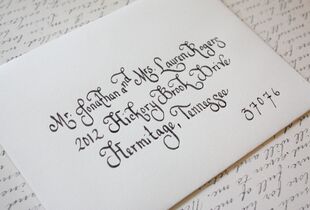 Mr. Jonathan and Mrs. Lauren Rogers
2012 Hickory Brook Drive
Hermitage, Tennessee
37076